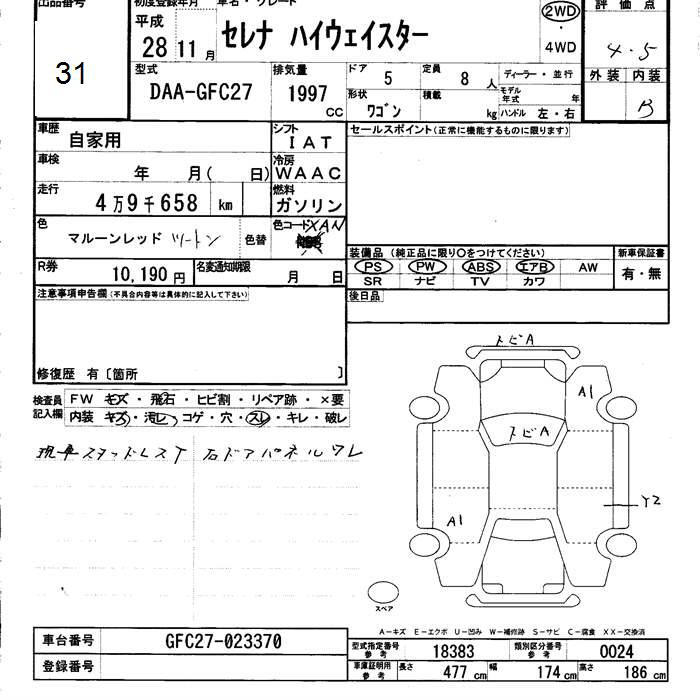 出品番号
31
初度登録年月
平成
28 11 月
車名・グレード
セレナ ハイウェイスター
2WD
・
4WD
評価点
4.5
型式
DAA-GFC27
排気量
1997
CC
ドア 5
定員 8 人
形状 ワゴン
積載 kg
ディーラー・並行
モデル年式 年
ハンドル 左・右
外装 内装
B
車歴
自家用
シフト
IAT
車検
年 月( 日)
冷房
WAAC
走行
4万9千658 km
燃料
ガソリン
色
マルーンレッド ツートン
色替
色コード XAN
R券
10,190 円
名変通知期限
月 日
セールスポイント(正常に機能するものに限ります)
装備品(純正品に限り○をつけてください)
新車保証書
PS PW ABS エアB AW
SR ナビ TV カワ
有・無
後日品
注意事項申告欄(不具合内容等は具体的に記入して下さい)
修復歴 有〔箇所 〕
検査員
記入欄
FW キズ・飛石・ヒビ割・リペア跡・×要
内装 キズ・汚レ・コゲ・穴・スレ・キレ・破レ
現車スタッドレスT 右ドアパネルワレ
トビA
A1
トビA
Y2
A1
スペア
A-キズ E-エクボ U-凹み W-補修跡 S-サビ C-腐食 XX-交換済
車台番号
GFC27-023370
登録番号
型式指定番号
参考
18383
類別区分番号
参考
0024
車庫証明用
参考
長さ 477 cm
幅 174 cm
高さ 186 cm